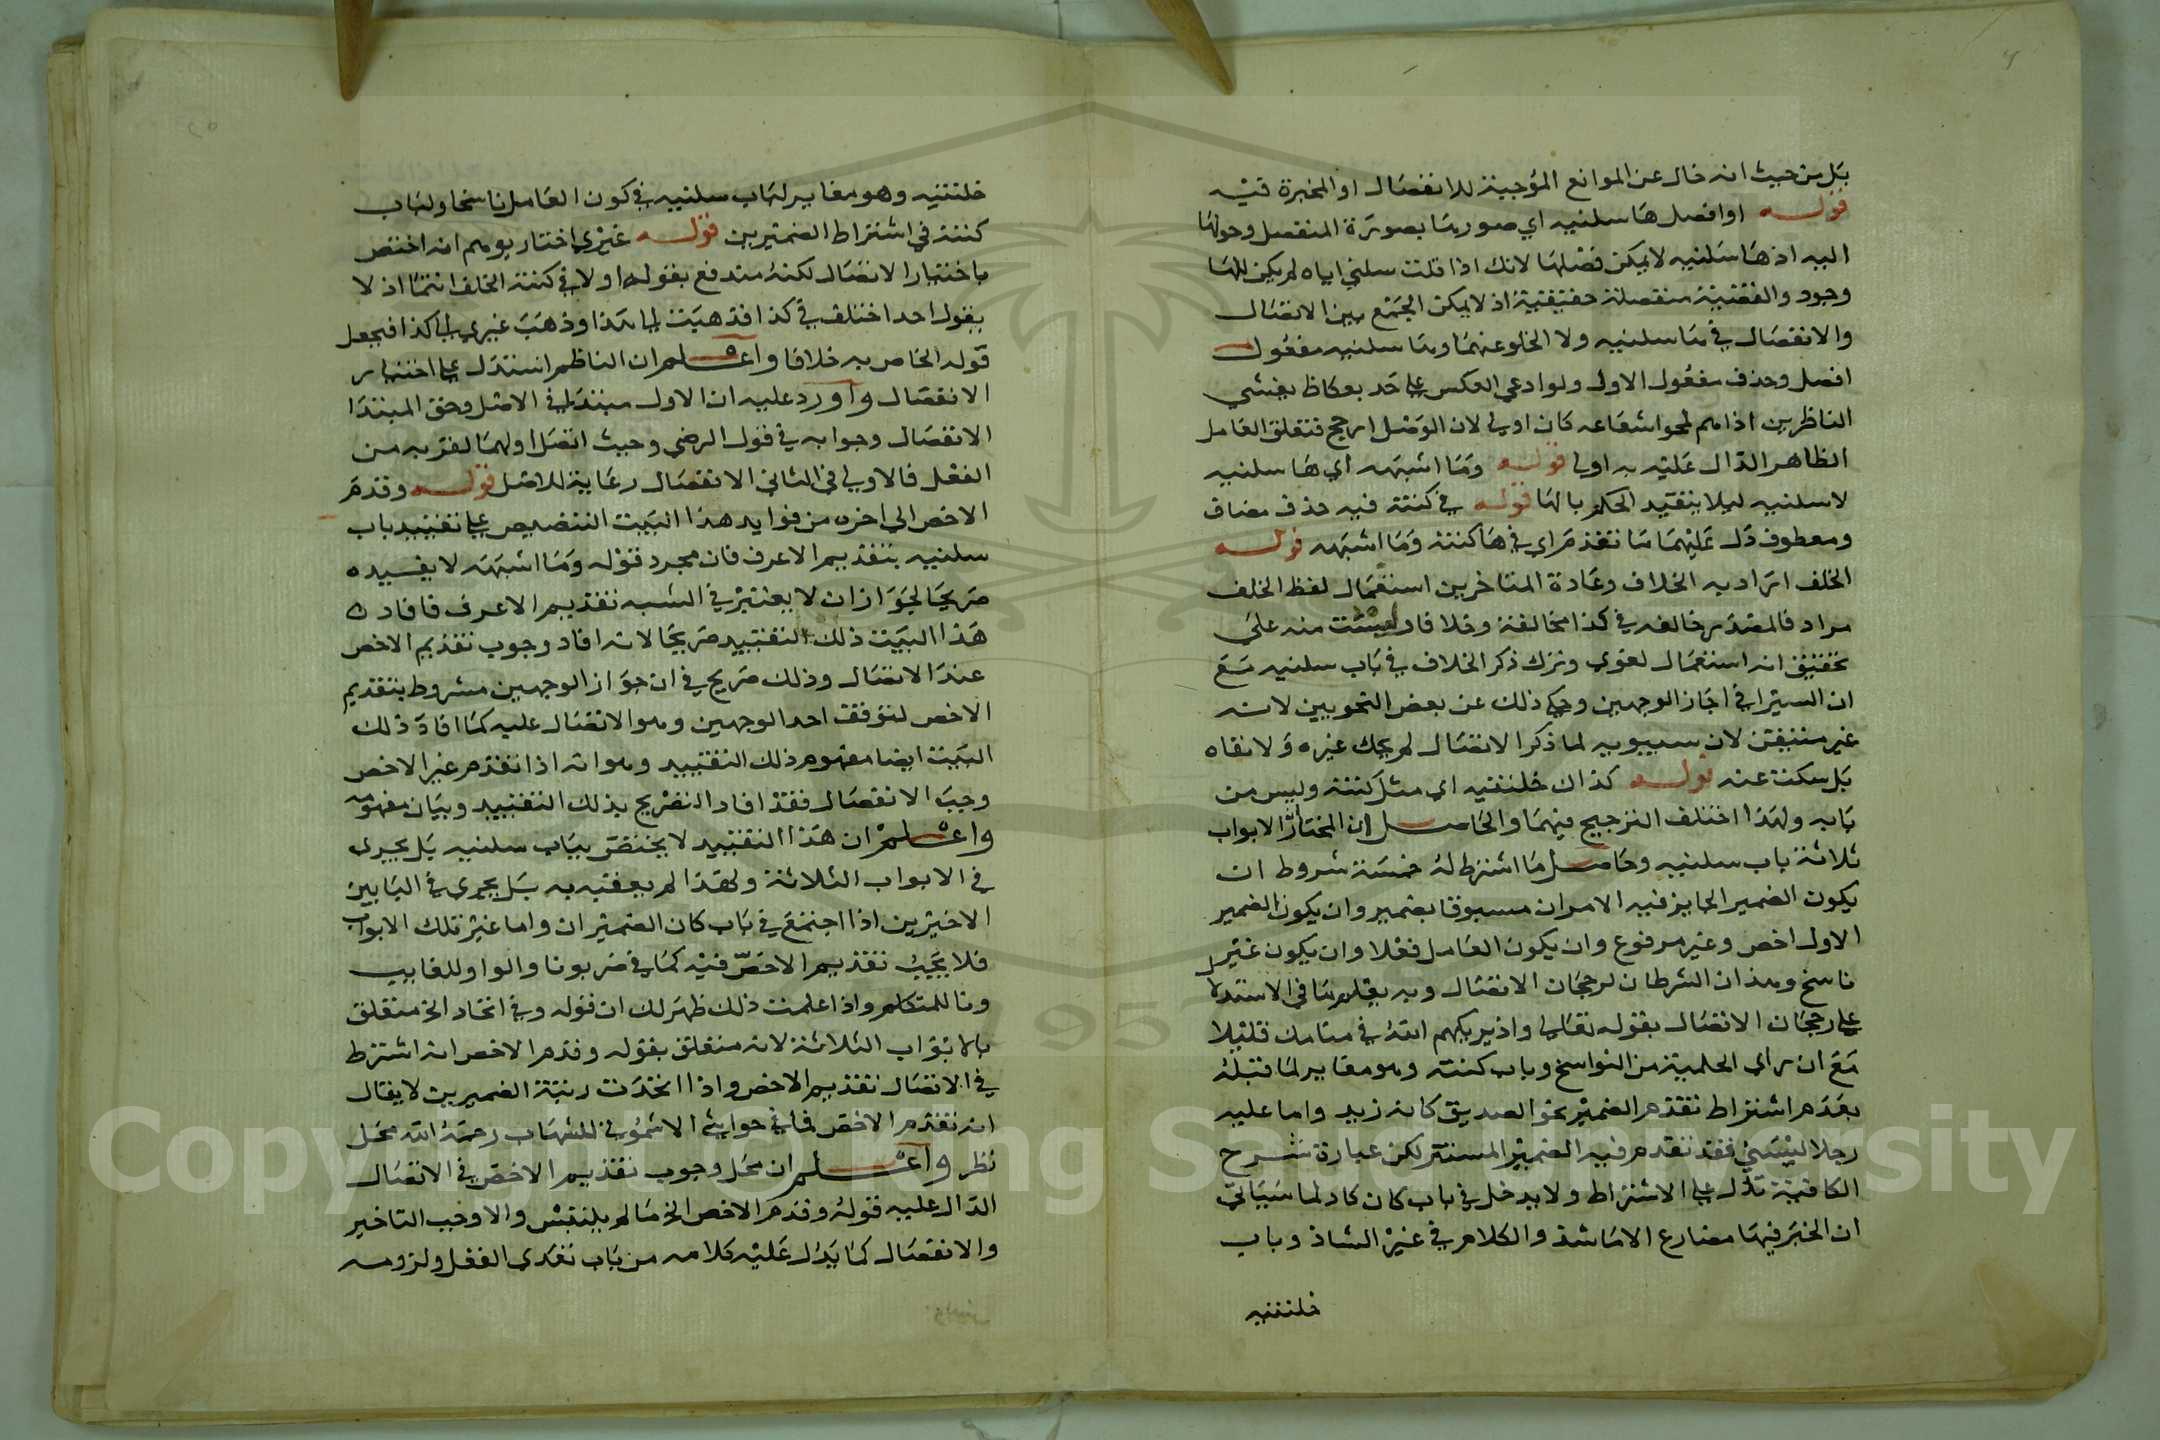 بل من حيث انه خال عن الموانع الموجبة للانفصال او المخبرة فيه
قوله اوافصل هاسلنيه اي صورها بصورة المنفصل وحولها
اليه اذ هاسلنيه لايمكن فصلها لانك اذا قلت سلني اياه لم يكن للها
وجود والقضية منفصلة حقيقية اذ لايمكن الجمع بين الاتصال
والانفصال في هاسلنيه ولا الخلو عنهما وها سلنيه مفعول
افصل وحذف مفعول الاول ولوادعى العكس على حد بعكاظ يعشي
الناظرين اذا هم لمحوا شعاعه كان اولى لان الوصل ارجح فتعلق العامل
الظاهر الدال عليه به اولى قوله وما اشبهه اي ها سلنيه
لاسلنيه ليلا يتقيد الحكم بالها قوله في كنته فيه حذف مضاف
ومعطوف دل عليهما ما تقدم اي في ها كنته وما اشبهه قوله
الخلف اراد به الخلاف وعادة المتاخرين استعمال لفظ الخلف
مراد فالمصدر خالفه في كذا مخالفة وخلافا منه على
تحقيق انه استعمال لغوي وترك ذكر الخلاف في باب سلنيه مع
ان السيرافي اجاز الوجهين وحكى ذلك عن بعض النحويين لانه
غير متيقن لان سيبويه لما ذكر الاتصال لم يحك غيره ولا نفاه
بل سكت عنه قوله كذاك خلتنيه اي مثل كنته وليس من
بابه ولهذا اختلف الترجيح فيهما والحاصل ان المختار الابواب
ثلاثة باب سلنيه وحاصل ما اشترط له خمسة شروط ان
يكون الضمير الجايز فيه الامران مسبوقا بضمير وان يكون الضمير
الاول اخص وغير مرفوع وان يكون العامل فعلا وان يكون غير
ناسخ وهذان الشرطان لرجحان الاتصال وبه يعلم ما في الاستدلال
على رجحان الاتصال بقوله تعالى واذ يريكهم الله في منامك قليلا
مع ان راى الحلمية من النواسخ وباب كنته وهو مغاير لما قبله
بعدم اشتراط تقدم الضمير نحو الصديق كانه زيد واما عليه
رجلا ليسني فقد تقدم فيه الضمير المستتر لكن عبارة شرح
الكافية تدل على الاشتراط ولا يدخل في باب كان كاد لما سياتي
ان الخبر فيها مضارع الا ما شذ والكلام في غير الشاذ وباب
خلتنيه
خلتنيه وهو مغاير لباب سلنيه في كون العامل ناسخا ولباب
كنته في اشتراط الضميرين قوله غيري اختار يوهم انه اختص
باختيار الانفصال لكنه مندفع بقوله اولا في كنته الخلف انتما اذ لا
يقول احد اختلف في كذا فذهبت الى هذا وذهب غيري الى كذا فيجعل
قوله الخاص به خلافا واعلم ان الناظم استدل على اختيار
الانفصال واورد عليه ان الاول مبتدا في الاصل وحق المبتدا
الانفصال وجوابه في قول الرضي وحيث اتصل اولهما لقربه من
الفعل فالاولى في الثاني الانفصال رعاية للاصل قوله وقدم
الاخص الى اخره من فوايد هذا البيت التنصيص على تقييد باب
سلنيه بتقديم الاعرف فان مجرد قوله وما اشبهه لا يفيده
صريحا لجواز ان لا يعتبر في الشبه تقديم الاعرف فافاد
هذا البيت ذلك التقييد صريحا لانه افاد وجوب تقديم الاخص
عند الاتصال وذلك صريح في ان جواز الوجهين مشروط بتقديم
الاخص لتوقف احد الوجهين وهو الاتصال عليه كما افاد ذلك
البيت ايضا مفهوم ذلك التقييد وهو انه اذا تقدم غير الاخص
وجب الانفصال فقد افاد التصريح بذلك التقييد وبيان مفهومه
واعلم ان هذا التقييد لا يختص بباب سلنيه بل يجرى
في الابواب الثلاثة ولهذا لم يعقبه به بل يجرى في البابين
الاخيرين اذا اجتمع في باب كان الضميران واما غير تلك الابواب
فلا يجب تقديم الاخص فيه كما في ضربونا والواو للغايب
ونا للمتكلم واذا علمت ذلك ظهر لك ان قوله وفي اتحاد الخ متعلق
بالابواب الثلاثة لانه متعلق بقوله وقدم الاخص انه اشترط
في الاتصال تقديم الاخص واذا اتحدت رتبة الضميرين لا يقال
انه تقدم الاخص فما في حواشي الاشموني للشهاب رحمه الله محل
نظر واعلم ان محل وجوب تقديم الاخص في الاتصال
الدال عليه قوله وقدم الاخص الخ ما لم يلتبس والا وجب التاخير
والانفصال كما يدل عليه كلامه من باب تعدي الفعل ولزومه
Copyright © King Saud University